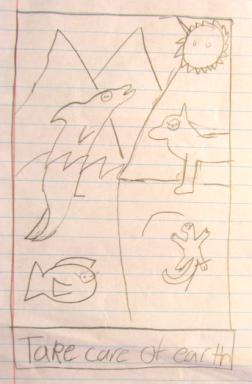 Take care of earth